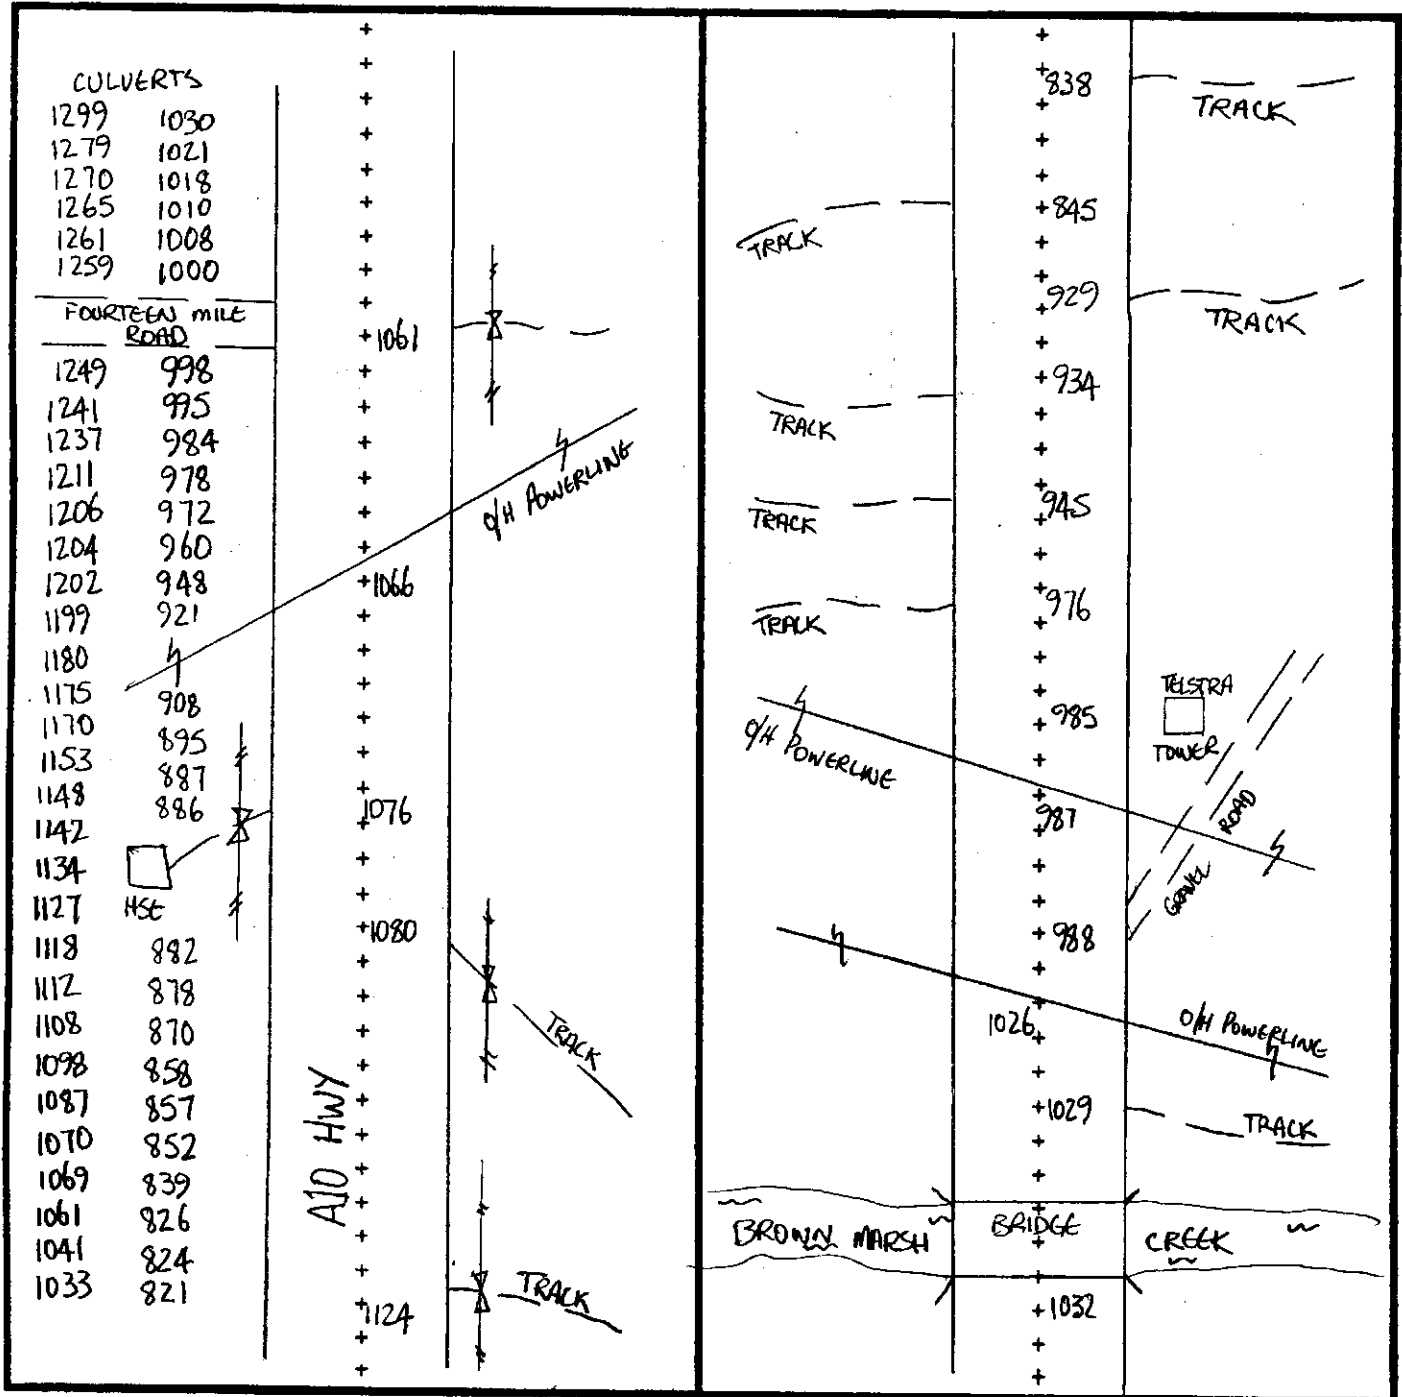 CULVERTS
1299 1030
1279 1021
1270 1018
1265 1010
1261 1008
1259 1000
FOURTEEN MILE
ROAD
1249 998
1241 995
1237 984
1211 978
1206 972
1204 960
1202 948
1199 921
1180
1175 908
1170 895
1153 887
1148 886
1142
1134
1127 HSE
1118 882
1112 878
1108 870
1098 858
1087 857
1070 852
1069 839
1061 826
1041 824
1033 821
A10 HWY
1061
O/H POWERLINE
1066
1076
1080
TRACK
1124
TRACK
838
TRACK
845
TRACK
929
TRACK
934
TRACK
945
TRACK
976
TRACK
TELSTRA
TOWER
985
O/H POWERLINE
987
GRAVEL ROAD
988
1026
O/H POWERLINE
1029
TRACK
BROWN MARSH BRIDGE CREEK
1032